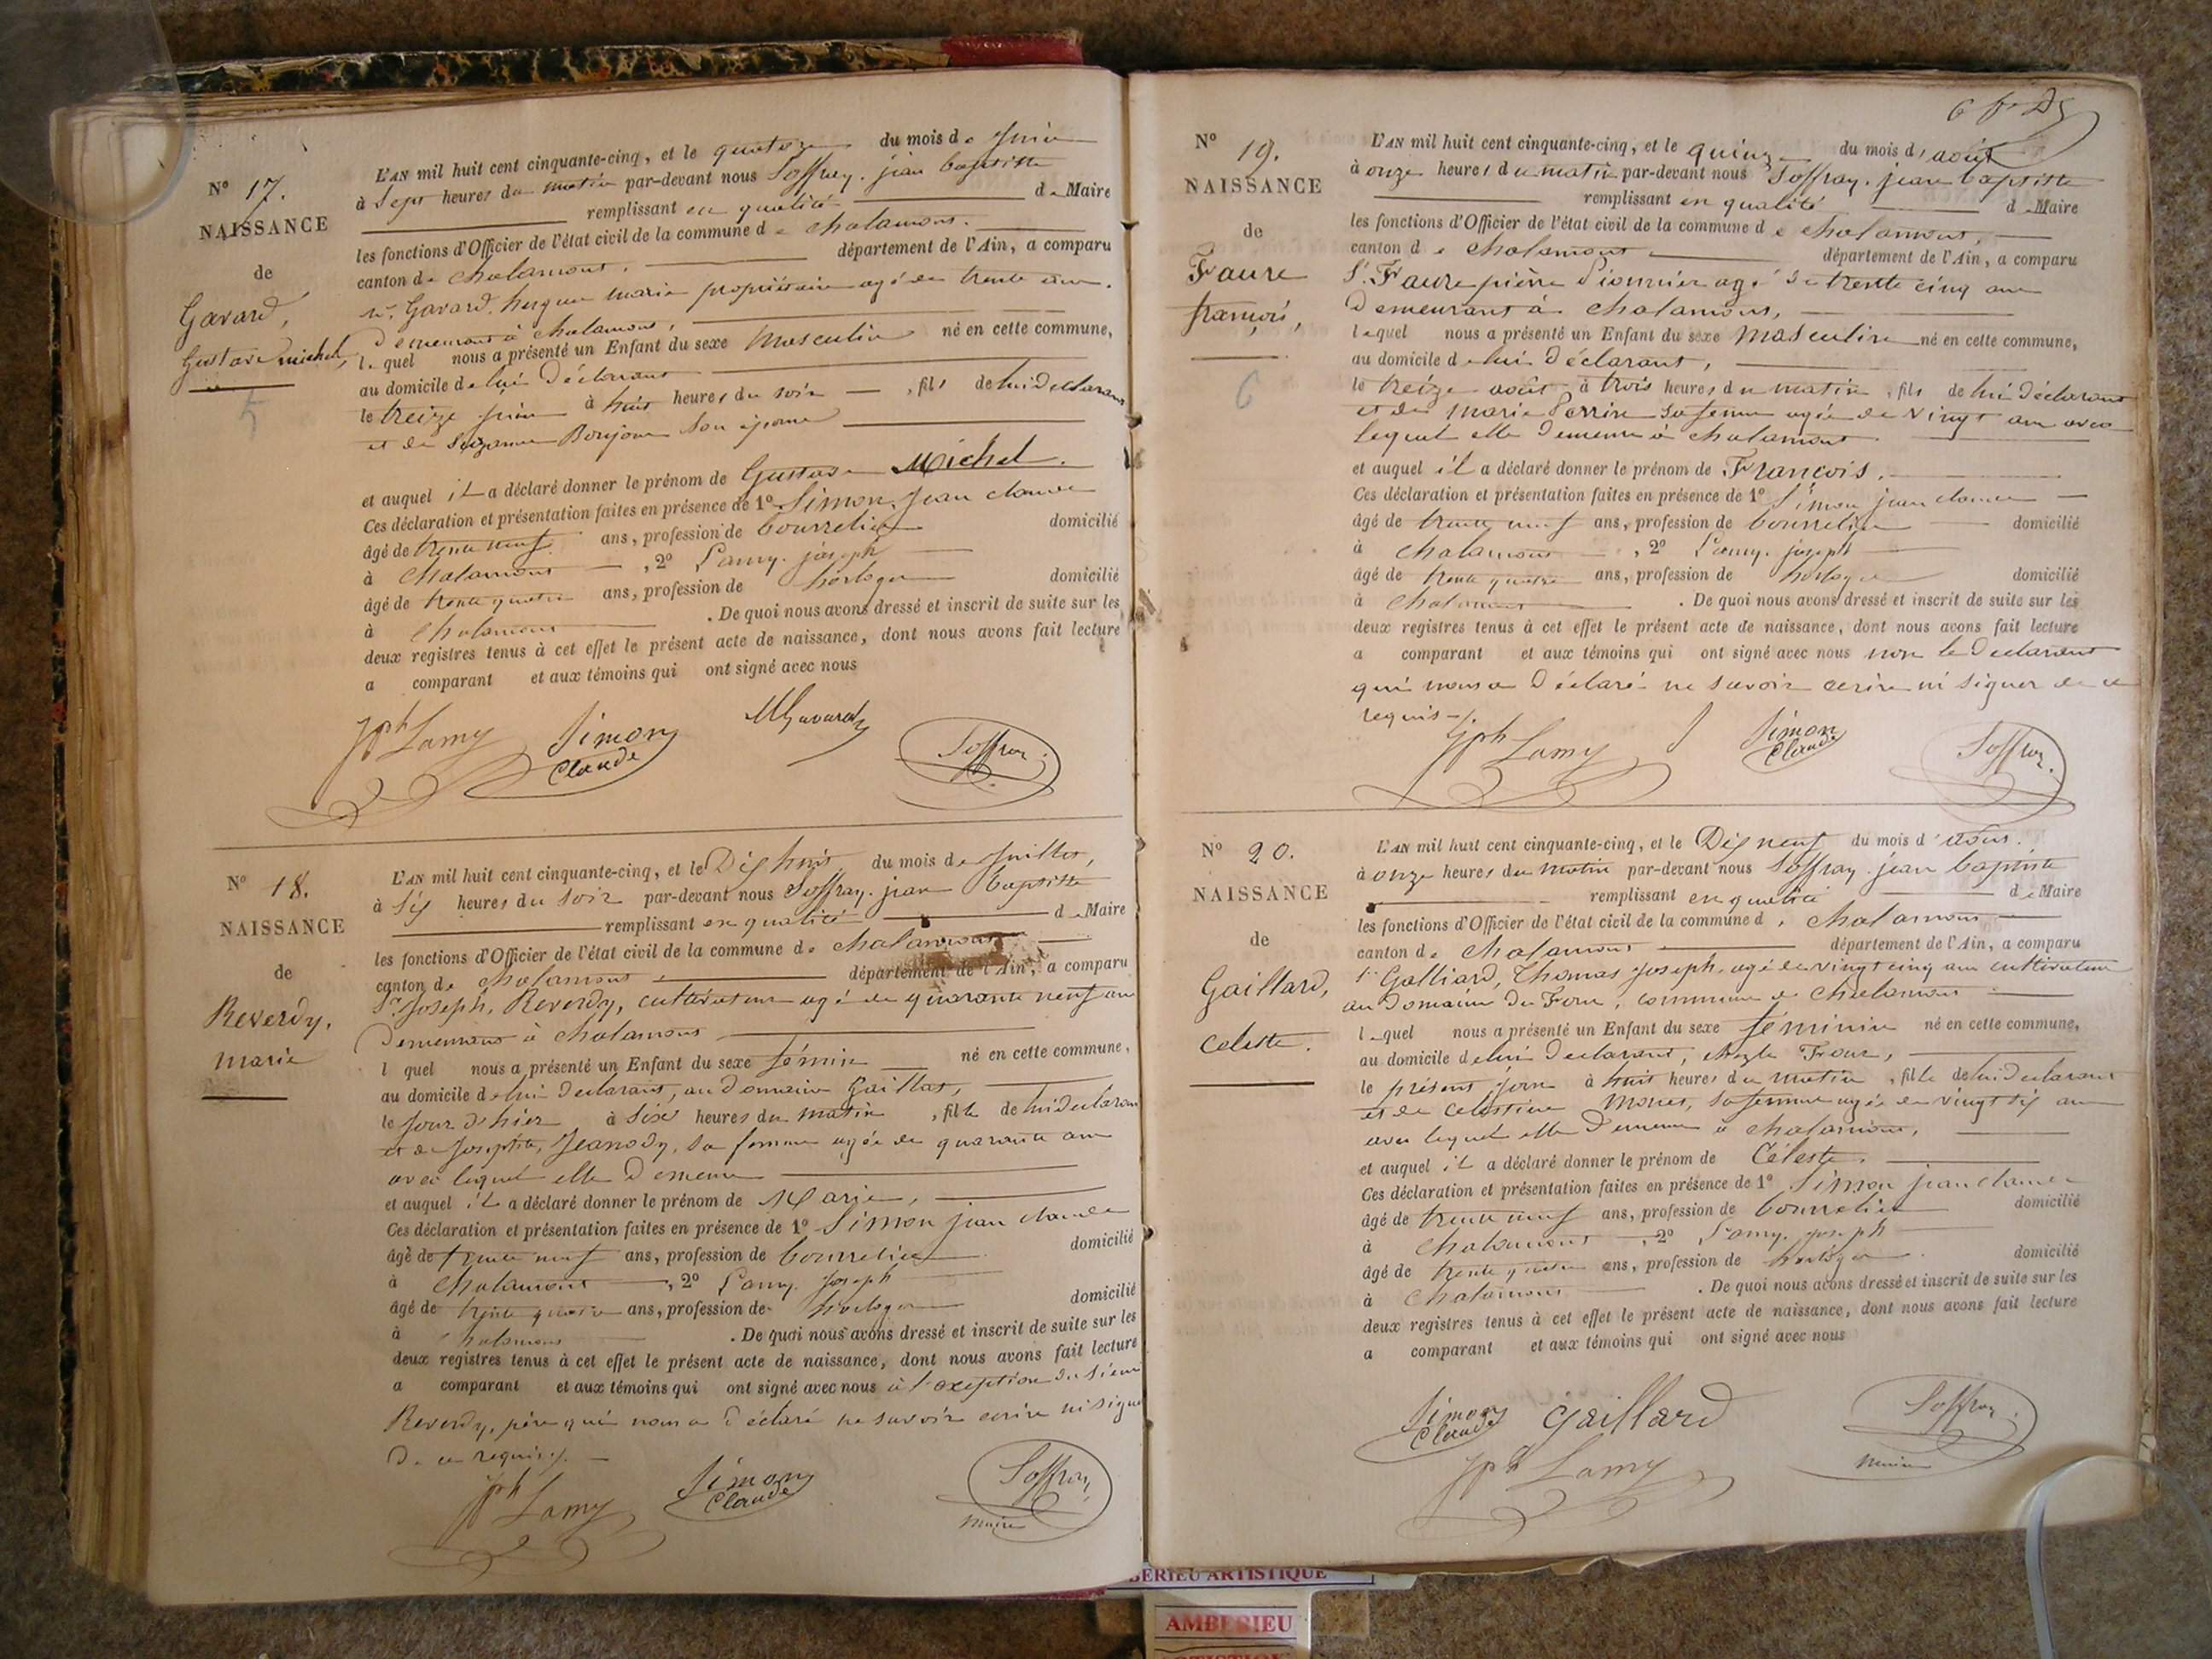 N° 17.
NAISSANCE
de
Gavard,
Gustave michel,
5
L'AN mil huit cent cinquante-cinq, et le quatorze du mois de Juin
à Sept heures du matin par-devant nous Soffray. jean baptiste
remplissant en qualité de Maire
les fonctions d'Officier de l'état civil de la commune de chalamont.
canton de chalamont, département de l'Ain, a comparu
Gavard marie propriétaire agé de trente ans.
Demeurant à chalamont,
lequel nous a présenté un Enfant du sexe Masculin né en cette commune,
au domicile de lui Déclarant
le treize juin à huit heures du soir, fils de lui déclarant
et de Suzanne Bonjour son épouse
et auquel il a déclaré donner le prénom de Gustave Michel.
Ces déclaration et présentation faites en présence de 1° Simon, Jean claude
âgé de trente neuf ans, profession de bourrelier domicilié
à Chalamont, 2° Lamy. joseph
âgé de trente quatre ans, profession de horloger domicilié
à Chalamont. De quoi nous avons dressé et inscrit de suite sur les
deux registres tenus à cet effet le présent acte de naissance, dont nous avons fait lecture
a comparant et aux témoins qui ont signé avec nous
Jph Lamy Simon Claude MGavard Soffray.
N° 18.
NAISSANCE
de
Reverdy,
marie
L'AN mil huit cent cinquante-cinq, et le Dix huit du mois de Juillet,
à Six heures du soir par-devant nous Soffray. jean baptiste
remplissant en qualité de Maire
les fonctions d'Officier de l'état civil de la commune de chalamont
canton de chalamont, département de l'Ain, a comparu
Sr. Joseph, Reverdy, cultivateur agé de quarante neuf ans
Demeurant à chalamont
l quel nous a présenté un Enfant du sexe fémin né en cette commune,
au domicile de lui Déclarant, au Domaine Gaillat,
le Jour d'hier à Six heures du matin, fille de lui déclarant
et de Josephte, Jeanody, sa femme agée de quarante ans
avec lequel elle Demeure
et auquel il a déclaré donner le prénom de Marie,
Ces déclaration et présentation faites en présence de 1° Simon jean claude
âgé de trente neuf ans, profession de bourrelier domicilié
à Chalamont, 2° Lamy. Joseph
âgé de trente quatre ans, profession de horloger domicilié
à Chalamont. De quoi nous avons dressé et inscrit de suite sur les
deux registres tenus à cet effet le présent acte de naissance, dont nous avons fait lecture
a comparant et aux témoins qui ont signé avec nous à l'exeption du Sieur
Reverdy, père qui nous a Déclaré ne savoir ecrire ni signer
De ce requis ⁒
Jph Lamy Simon Claude Soffray
Maire
6
N° 19.
NAISSANCE
de
Faure
françois,
6
L'AN mil huit cent cinquante-cinq, et le quinze du mois d'août
à onze heures du matin par-devant nous Soffray. jean baptiste
remplissant en qualité de Maire
les fonctions d'Officier de l'état civil de la commune de Chalamont,
canton de Chalamont département de l'Ain, a comparu
Sr. Faure pièrre Pionnier agé de trente cinq ans
Demeurant à Chalamont,
lequel nous a présenté un Enfant du sexe masculin né en cette commune,
au domicile de lui Déclarant,
le treize août à trois heures du matin, fils de lui Déclarant
et de marie Perrin sa femme agée de vingt ans avec
lequel elle Demeure à chalamont.
et auquel il a déclaré donner le prénom de François.
Ces déclaration et présentation faites en présence de 1° Simon jean claude
âgé de trente neuf ans, profession de bourrelier domicilié
à Chalamont, 2° Lamy. joseph
âgé de trente quatre ans, profession de horloger domicilié
à Chalamont. De quoi nous avons dressé et inscrit de suite sur les
deux registres tenus à cet effet le présent acte de naissance, dont nous avons fait lecture
a comparant et aux témoins qui ont signé avec nous non le Déclarant
qui nous a Déclaré ne savoir ecrire ni signer de ce
requis ⁒
Jph Lamy Simon Claude Soffray.
N° 20.
NAISSANCE
de
Gaillard,
celeste.
L'AN mil huit cent cinquante-cinq, et le Dix neuf du mois d'aout.
à onze heures du matin par-devant nous Soffray. jean baptiste
remplissant en qualité de Maire
les fonctions d'Officier de l'état civil de la commune d, Chalamont
canton de Chalamont département de l'Ain, a comparu
Sr Galliard, Thomas Joseph, agé de vingt cinq ans cultivateur
au Domaine du Four, commune de Chalamont
lequel nous a présenté un Enfant du sexe féminin né en cette commune,
au domicile de lui Déclarant, Four,
le présent jour à huit heures du matin, fille de lui déclarant
et de celestine Monet, sa femme agée de vingt six ans
avec lequel elle Demeure à chalamont,
et auquel il a déclaré donner le prénom de Céleste.
Ces déclaration et présentation faites en présence de 1° Simon jean claude
âgé de trente neuf ans, profession de bourrelier domicilié
à Chalamont, 2° Lamy. joseph
âgé de trente quatre ans, profession de horloger domicilié
à Chalamont. De quoi nous avons dressé et inscrit de suite sur les
deux registres tenus à cet effet le présent acte de naissance, dont nous avons fait lecture
a comparant et aux témoins qui ont signé avec nous
Simon Claude Gaillard Soffray
Jph Lamy Maire
BERIEU ARTISTIQUE
AMBERIEU